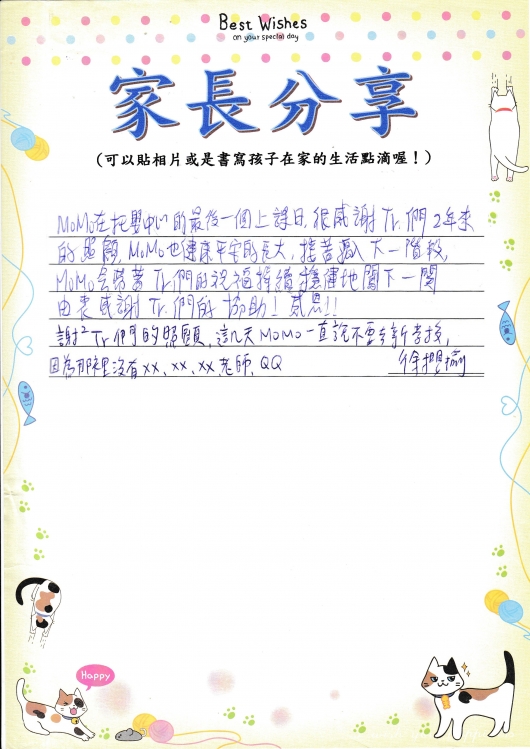 Best Wishes
on your special day
家長分享
(可以貼相片或是書寫孩子在家的生活點滴喔！)
MoMo在托嬰中心的最後一個上課日,很感謝Tr.們2年來
的照顧,MoMo也健康平安的長大,接著邁入下一階段,
MoMo會帶著Tr.們的祝福持續穩健地闖下一關
由衷感謝Tr.們的協助！感恩!!
謝²Tr.們的照顧,這几天MoMo一直說不要去新學校,
因為那裡沒有xx、xx、xx老師,QQ
徐
Happy